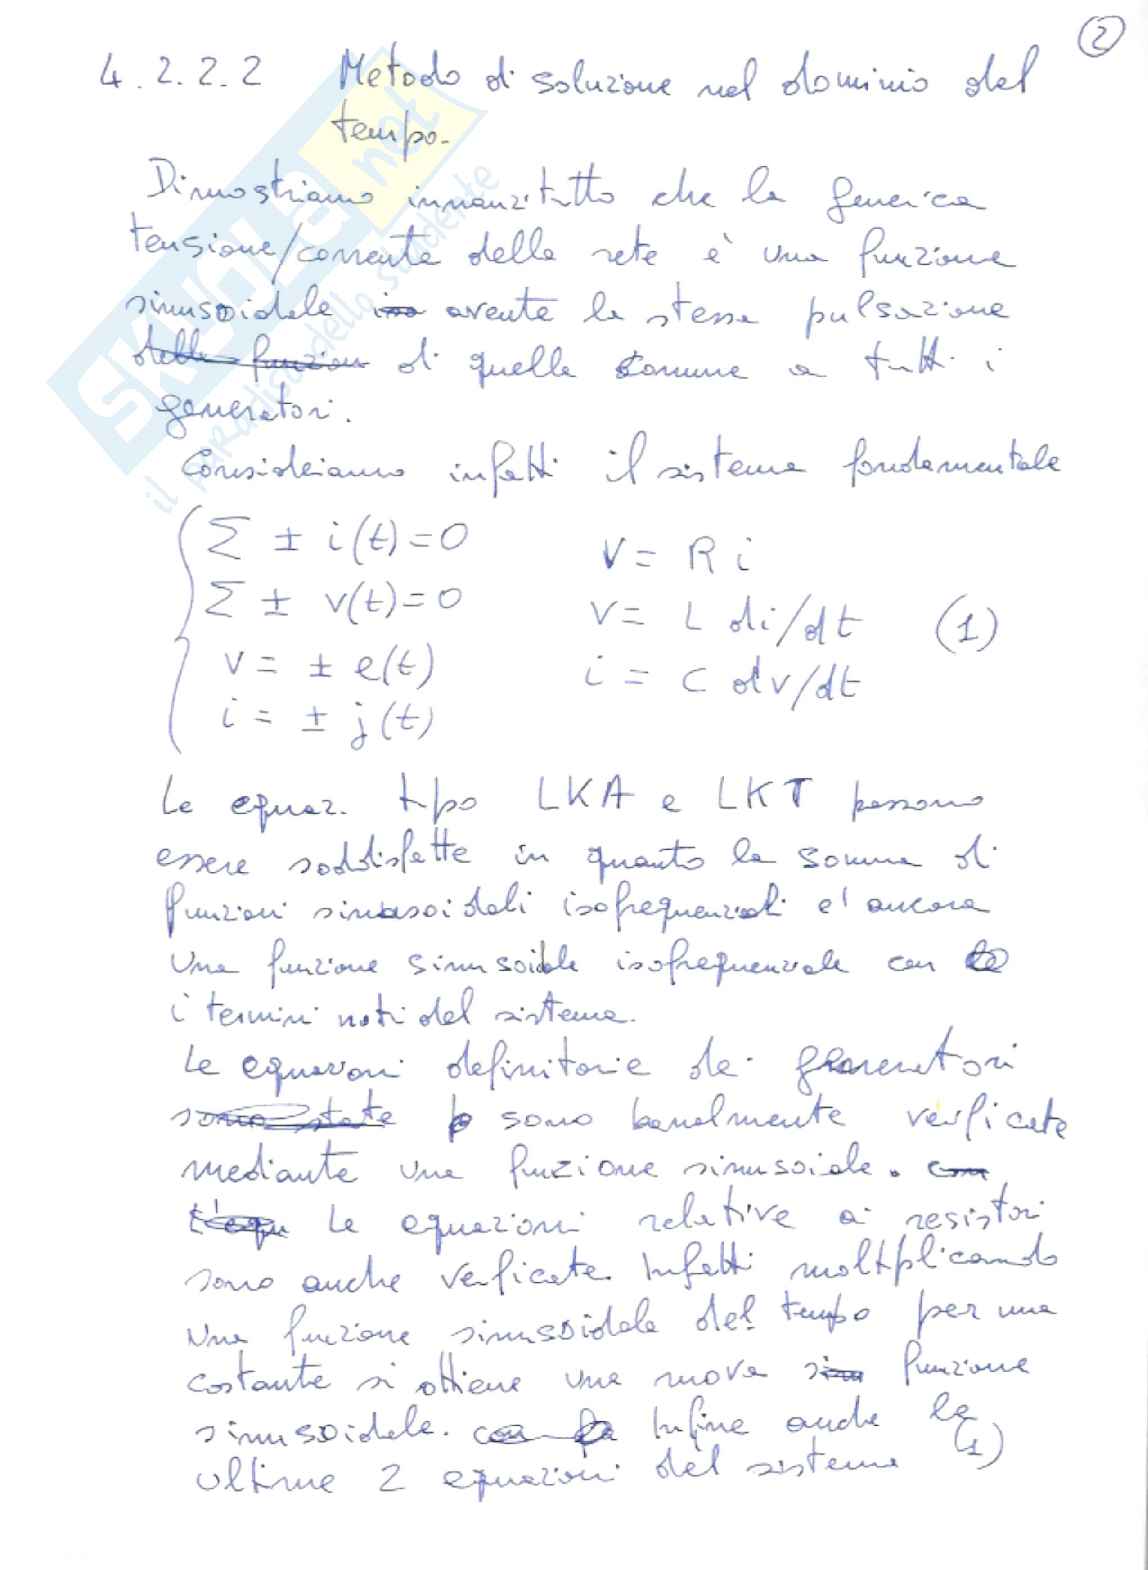 2
4.2.2.2 Metodo di soluzione nel dominio del
tempo.
Dimostriamo innanzitutto che la generica
tensione/corrente della rete è una funzione
sinusoidale avente la stessa pulsazione
della funzion di quella comune a tutti i
generatori.
Consideriamo infatti il sistema fondamentale
Σ ± i(t)=0 V= R i
Σ ± v(t)=0 v= L di/dt (1)
v= ± e(t) i = C dv/dt
i = ± j(t)
Le equaz. tipo LKA e LKT possono
essere soddisfatte in quanto la somma di
funzioni sinusoidali isofrequenziali e' ancora
una funzione sinusoidale isofrequenziale con
i termini noti del sistema.
Le equazioni definitorie dei generatori
sono state sono banalmente verificate
mediante una funzione sinusoiale. con
Le equazioni relative ai resistori
sono anche verificate. Infatti moltiplicando
una funzione sinusoidale del tempo per una
costante si ottiene una nuova sin funzione
sinusoidale. Infine anche le
ultime 2 equazioni del sistema (1)
SKUOLA.net
il paradiso dello studente